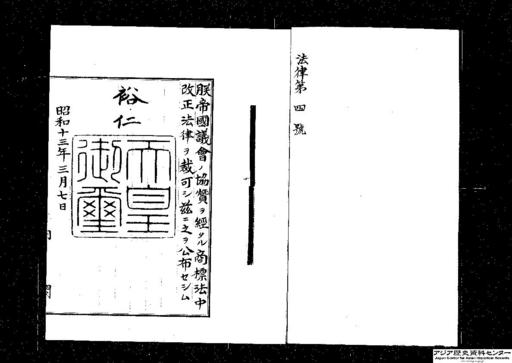 法律第四號
朕帝國議會ノ協賛ヲ經タル商標法中
改正法律ヲ裁可シ茲ニ之ヲ公布セシム
裕仁
天皇
御璽
昭和十三年三月七日
アジア歴史資料センター
Japan Center for Asian Historical Records